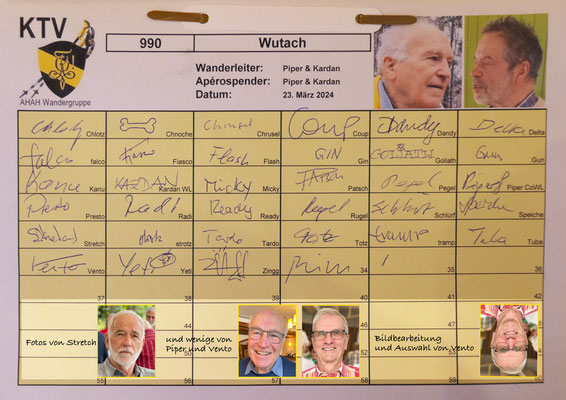 KTV
990 Wutach
Wanderleiter: Piper & Kardan
Apérospender: Piper & Kardan
Datum: 23. März 2024
AHAH Wandergruppe
Chlotz Chnoche Chrusel Coup Coup Dandy Dandy Delta Delta
falco falco Fiasco Flash Flash GIN Gin GOLIATH Goliath Gun Gun
Kanu Kanu KARDAN Kardan WL Micky Micky Patsch Pegel Piper Piper CoWL
Presto Presto Radi Radi Ready Ready Rugel Rugel Schlurf Schlürf Speiche Speiche
Stretch Stretch strotz strotz Tardo Tardo Totz Totz tramp tramp Tuba Tuba
Vento Vento Yeti Yeti Zingg 34 35 36
37 39 40 41 42
Fotos von Stretch
und wenige von
Piper und Vento
Bildbearbeitung
und Auswahl von Vento
55 56 57 58 59